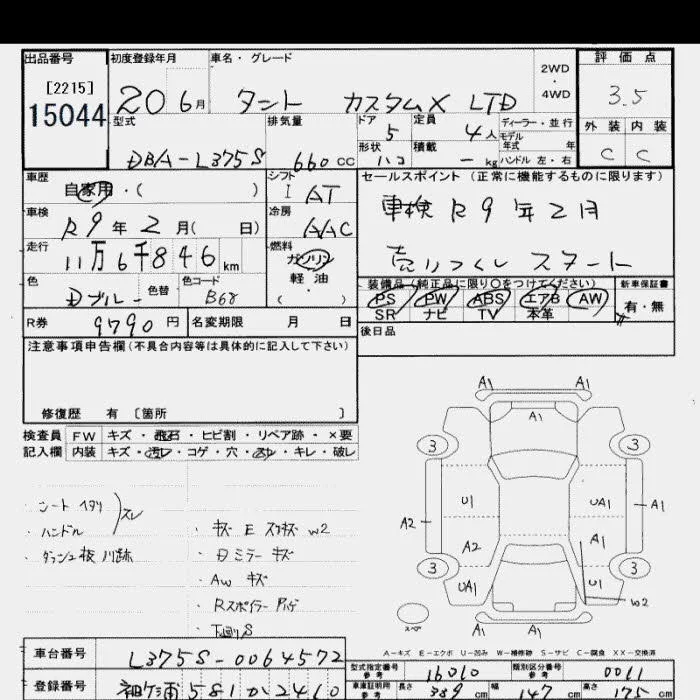 出品番号 初度登録年月 車名・グレード 2WD ・ 4WD 評価点
[2215]
15044 20 6月 タント カスタムX LTD 3.5
型式 排気量 ドア 定員 ディーラー・並行 外装 内装
5 4人 モデル年式 年式
DBA-L375S 660cc 形状 ハコ 積載 - kg ハンドル 左・右 C C
車歴 自家用・( ) シフト I AT セールスポイント (正常に機能するものに限ります)
車検 R9年2月( 日) 冷房 AAC 車検 R9年2月
走行 11万6千846km 燃料 ガソリン 軽・油 ( ) 売りつくし スタート
色 Dブルー 色替 色コード B68 装備品(純正品に限り○をつけてください) 新車保証書
PS PW ABS エアB AW 有・無
SR ナビ TV 本革
R券 9790円 名変期限 月 日 後日品
注意事項申告欄(不具合内容等は具体的に記入して下さい)
修復歴 有 〔箇所 〕
検査員 FW キズ・飛石・ヒビ割・リペア跡・×要
記入欄 内装 キズ・汚レ・コゲ・穴・スレ・キレ・破レ
・シート ヘタリ
・ハンドル スレ
・ダッシュ板 パネ跡
・キズ E スリキズ W2
・Dミラー キズ
・AW キズ
・Rスポイラー
・下廻りS
A1 A1
A1
3 3
U1 UA1 A1
A2 A2 A1
3 3
UA1 U1
W2
スペア
A1 A1
A-キズ E-エクボ U-凹み W-補修跡 S-サビ C-腐食 XX-交換済
車台番号 L375S-0064572 型式指定番号 参考 16010 類別区分番号 参考 0061
登録番号 袖ケ浦 581 か 2410 車庫証明用 参考 長さ 339cm 幅 147cm 高さ 175cm